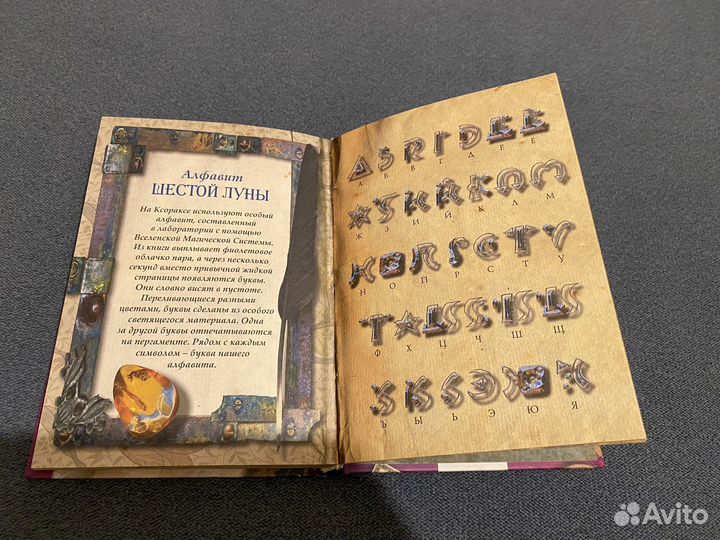 Алфавит
ШЕСТОЙ ЛУНЫ
На Ксораксе используют особый
алфавит, составленный
в лаборатории с помощью
Вселенской Магической Системы.
Из книги выплывает фиолетовое
облачко пара, а через несколько
секунд вместо привычной жидкой
страницы появляются буквы.
Они словно висят в пустоте.
Переливающиеся разными
цветами, буквы сделаны из особого
светящегося материала. Одна
за другой буквы отпечатываются
на пергаменте. Рядом с каждым
символом – буква нашего
алфавита.
А Б В Г Д Е Ё
Ж З И Й К Л М
Н О П Р С Т У
Ф Х Ц Ч Ш Щ
Ъ Ы Ь Э Ю Я
Avito